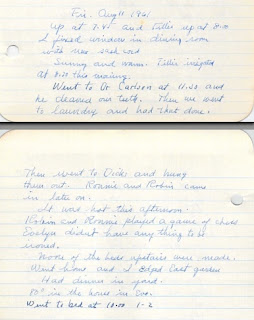 Fri. Aug 11 1961
up at 7:45 and Tillie up at 8:00
I fixed window in dining room
with new sash cord
Sunny and warm. Tillie
at 8:30 this morning.
Went to Dr Carlson at 11:00 and
he cleaned our teeth. Then we went
to laundry and had that done.
Then went to Dicks and hung
them out. Ronnie and Robin came
in later on.
It was hot this afternoon.
Robin and Ronnie played a game of chess
Evelyn didnt have any thing to be
ironed.
None of the beds upstairs were made.
Went home and I edged East garden
Had dinner in yard.
80° in the house in Eve.
Went to bed at 10:00 1-2